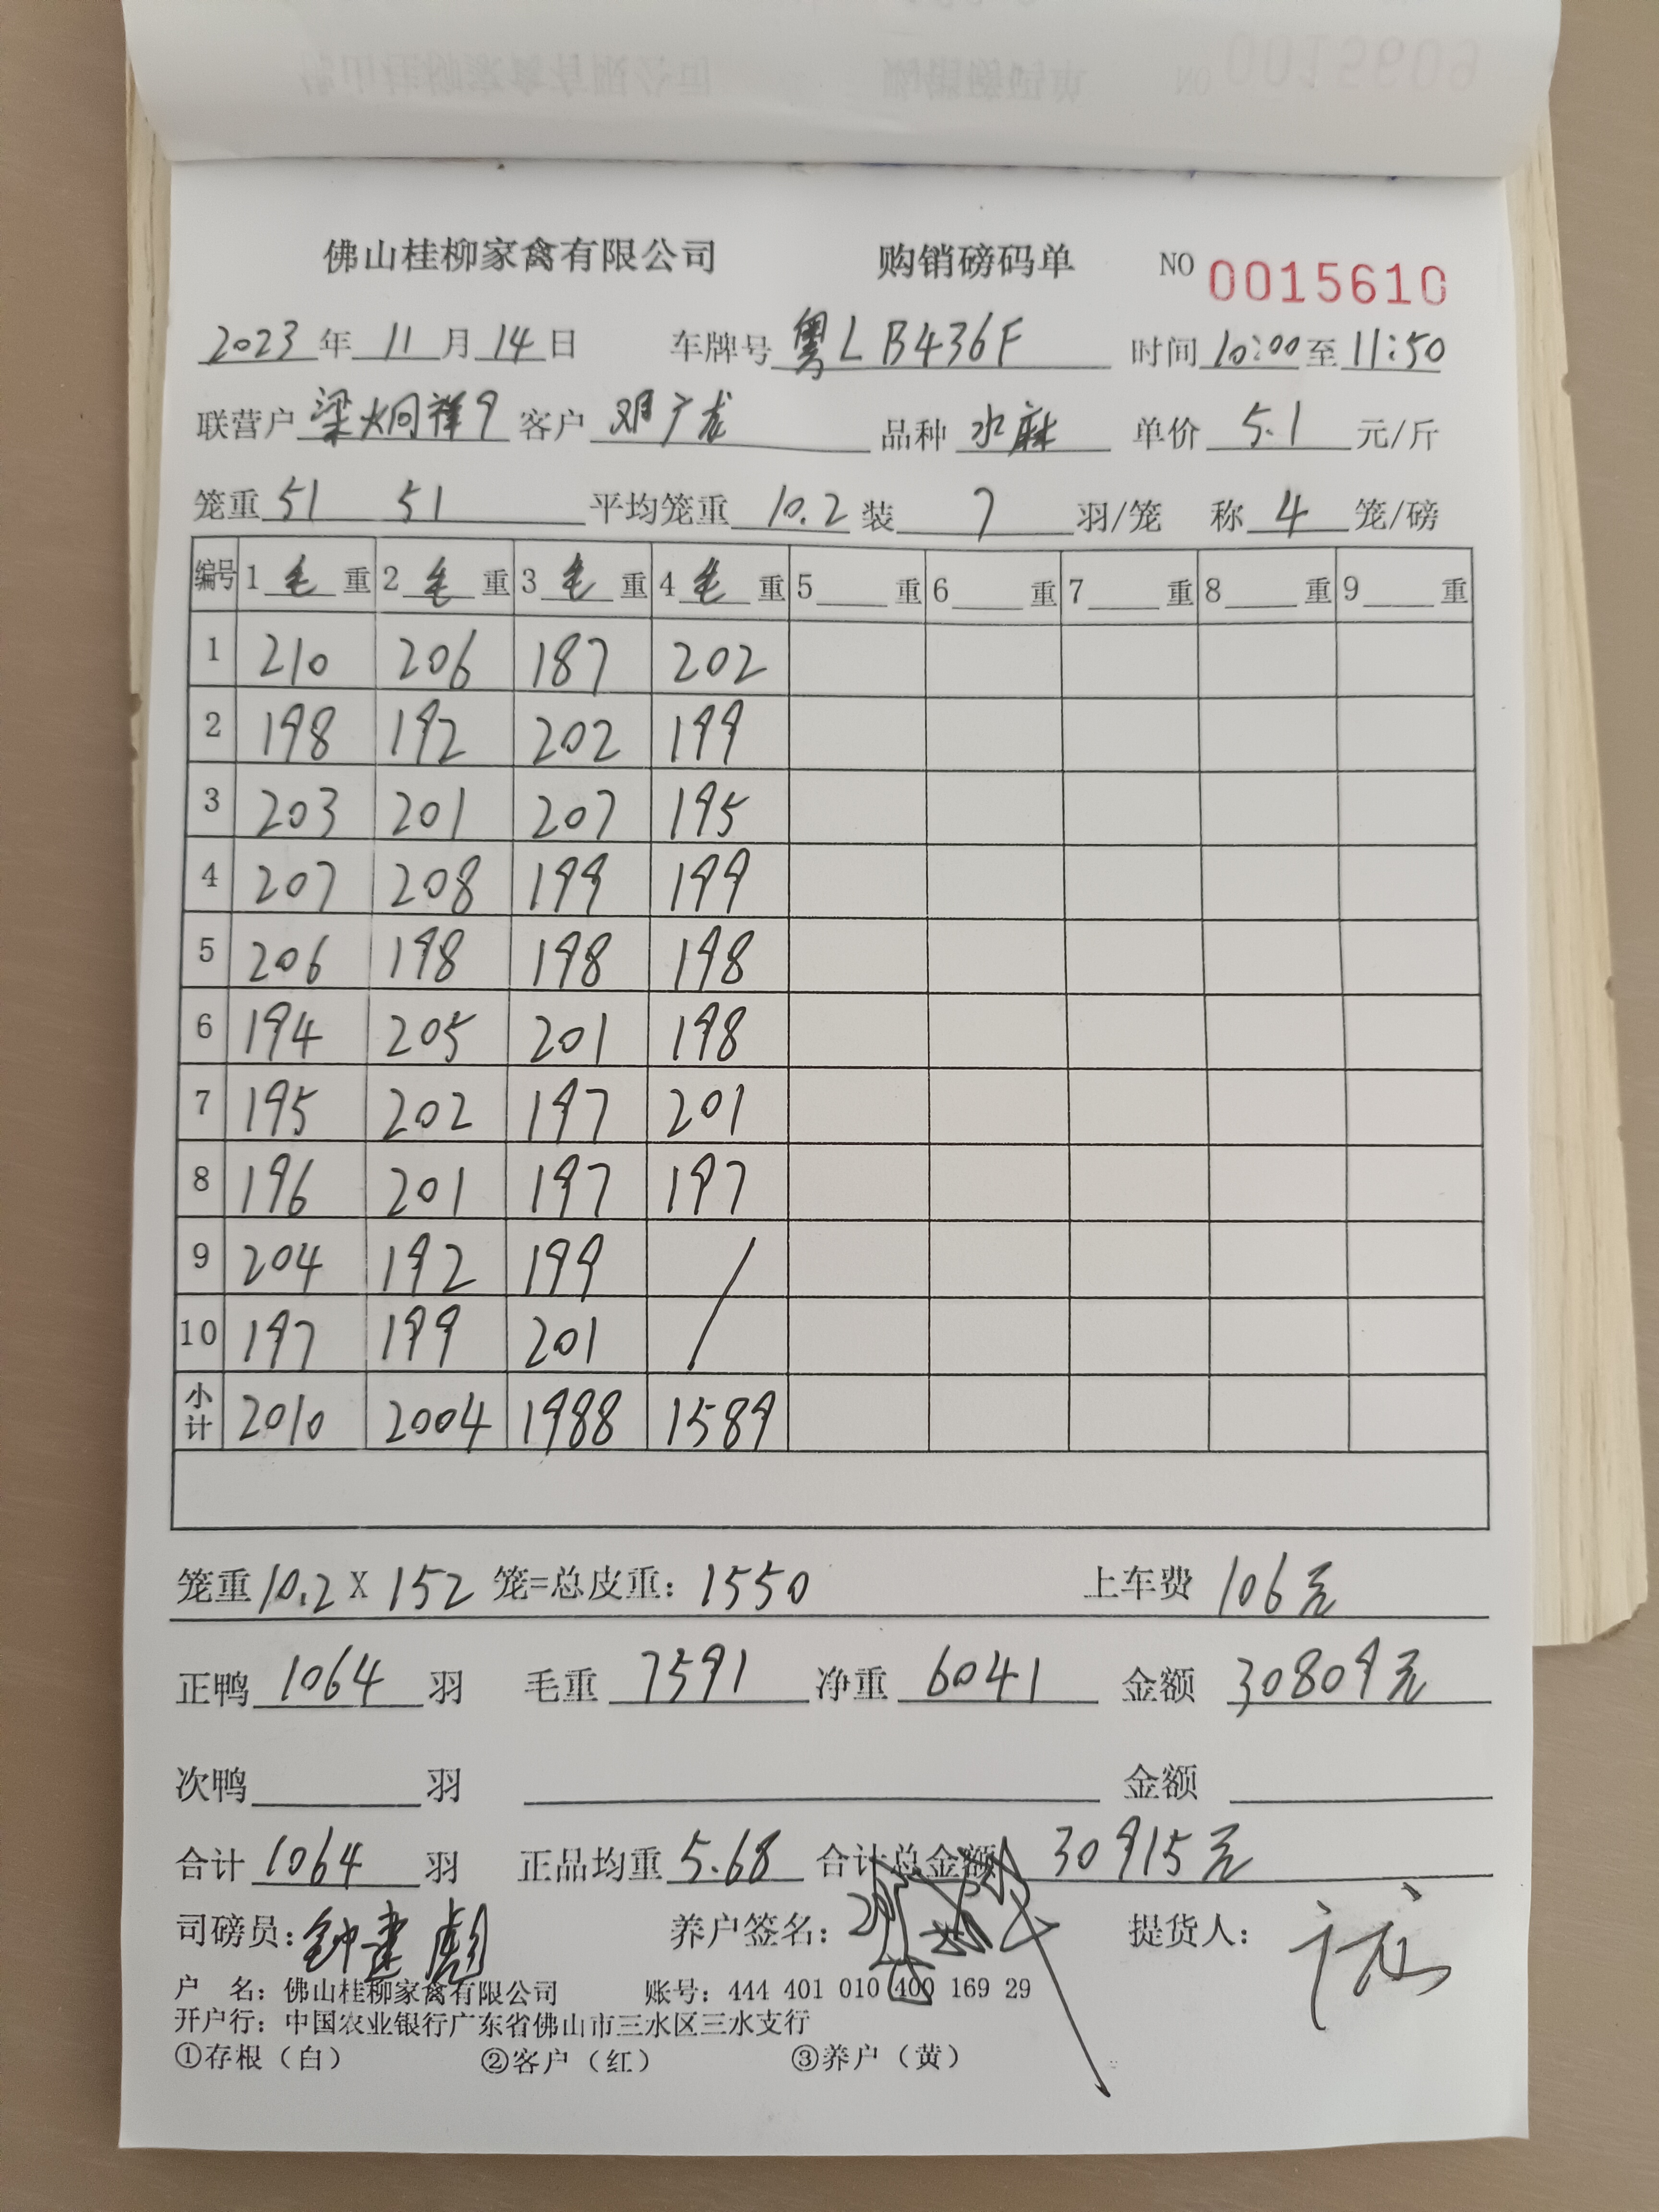 佛山桂柳家禽有限公司 购销磅码单 NO 0015610
2023年11月14日 车牌号 粤LB436F 时间 10:00至11:50
联营户 梁炯祥9 客户 邓广龙 品种 水麻 单价 5.1 元/斤
笼重 51 51 平均笼重 10.2 装 7 羽/笼 称 4 笼/磅
编号 1毛重 2毛重 3毛重 4毛重 5 重 6 重 7 重 8 重 9 重
1 210 206 187 202
2 198 192 202 199
3 203 201 207 195
4 207 208 199 199
5 206 198 198 198
6 194 205 201 198
7 195 202 197 201
8 196 201 197 197
9 204 192 199 /
10 197 199 201
小计 2010 2004 1988 1589
笼重 10.2 X 152 笼=总皮重: 1550 上车费 106元
正鸭 1064 羽 毛重 7591 净重 6041 金额 30809元
次鸭 羽 金额
合计 1064 羽 正品均重 5.68 合计总金额 30915元
司磅员: 钟建彪 养户签名: 提货人: 广龙
户 名: 佛山桂柳家禽有限公司 账号: 444 401 010 400 169 29
开户行: 中国农业银行广东省佛山市三水区三水支行
①存根（白） ②客户（红） ③养户（黄）